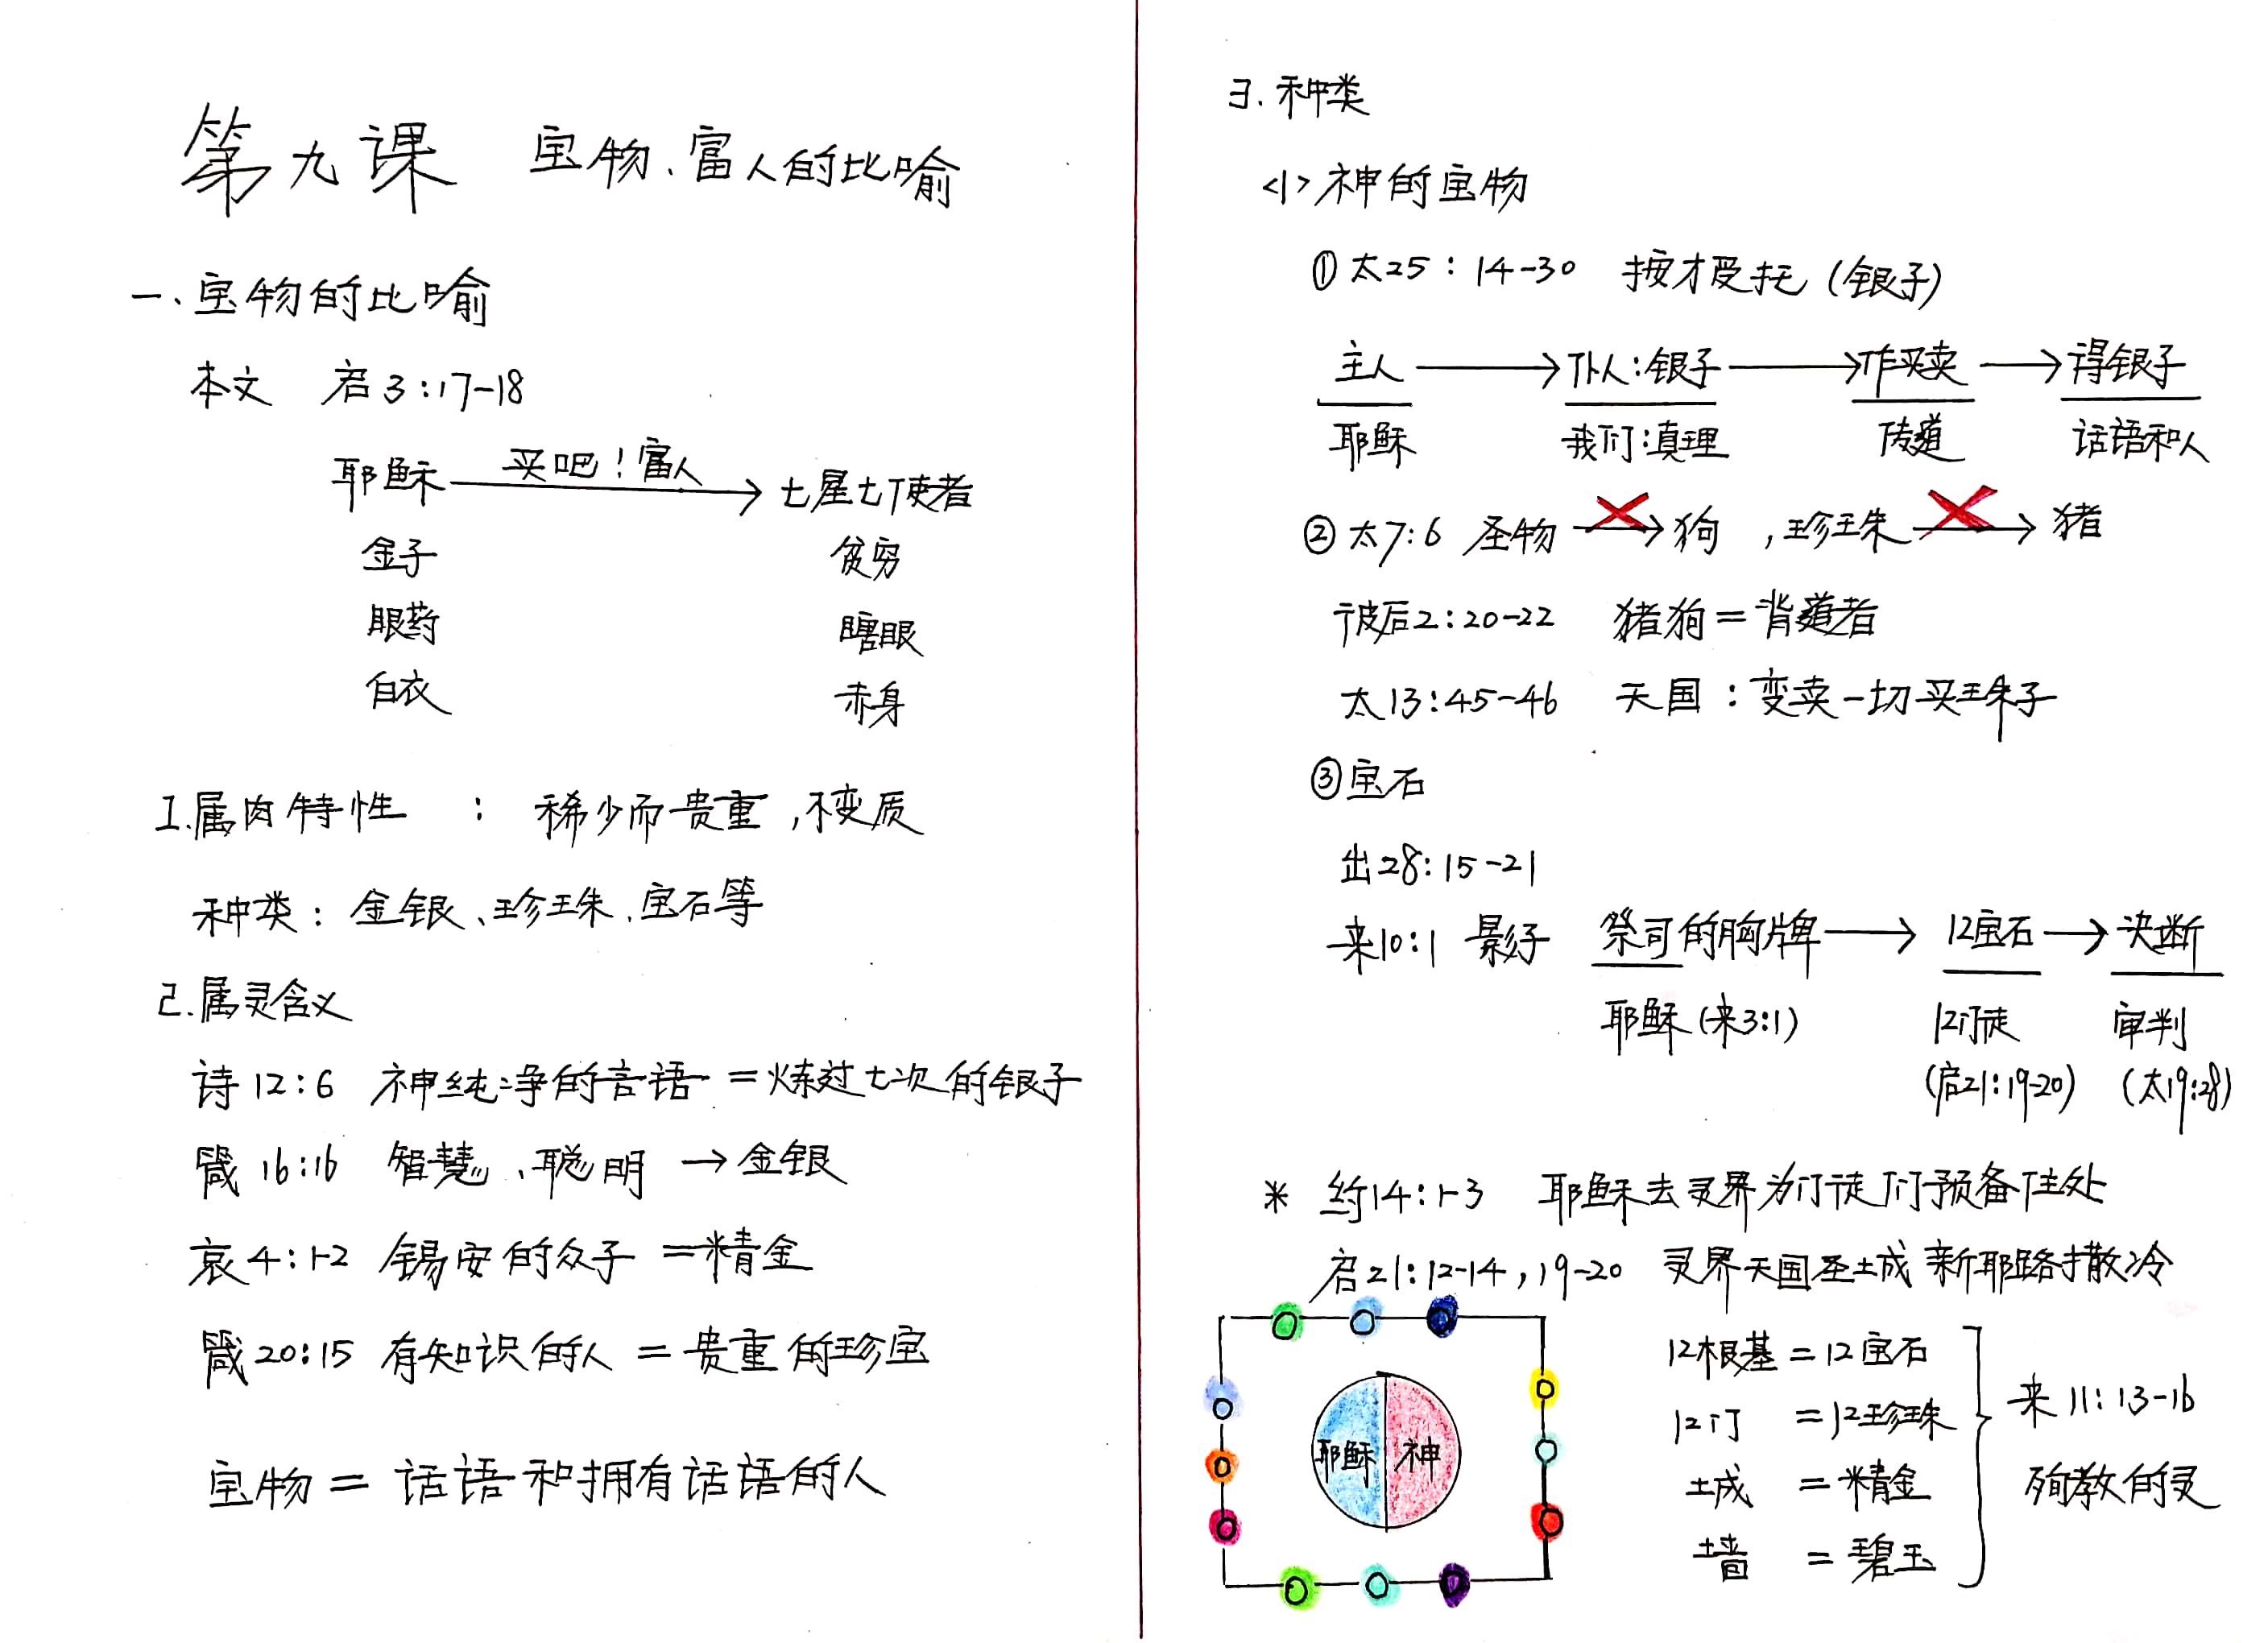 第九课 宝物、富人的比喻
一、宝物的比喻
本文 启3:17-18
耶稣 买吧！富人 → 七星七使者
金子 贫穷
眼药 瞎眼
白衣 赤身
1.属肉特性 : 稀少而贵重,不变质
种类: 金银、珍珠、宝石等
2.属灵含义
诗12:6 神纯净的言语 = 炼过七次的银子
箴16:16 智慧、聪明 → 金银
哀4:1-2 锡安的众子 = 精金
箴20:15 有知识的人 = 贵重的珍宝
宝物 = 话语和拥有话语的人
3. 种类
<1> 神的宝物
① 太25: 14-30 按才受托 (银子)
主人 → 仆人:银子 → 作买卖 → 得银子
耶稣 我们:真理 传道 话语和人
② 太7:6 圣物 → 狗 , 珍珠 → 猪
彼后2:20-22 猪狗 = 背道者
太13:45-46 天国 : 变卖一切买珠子
③ 宝石
出28:15-21
来10:1 影子 祭司的胸牌 → 12宝石 → 决断
耶稣 (来3:1) 12门徒 审判
(启21:19-20) (太19:28)
* 约14:1-3 耶稣去灵界为门徒们预备住处
启21:12-14,19-20 灵界天国圣城新耶路撒冷
12根基 = 12宝石
12门 = 12珍珠
城 = 精金
墙 = 碧玉
来11:13-16
殉教的灵
耶稣 神